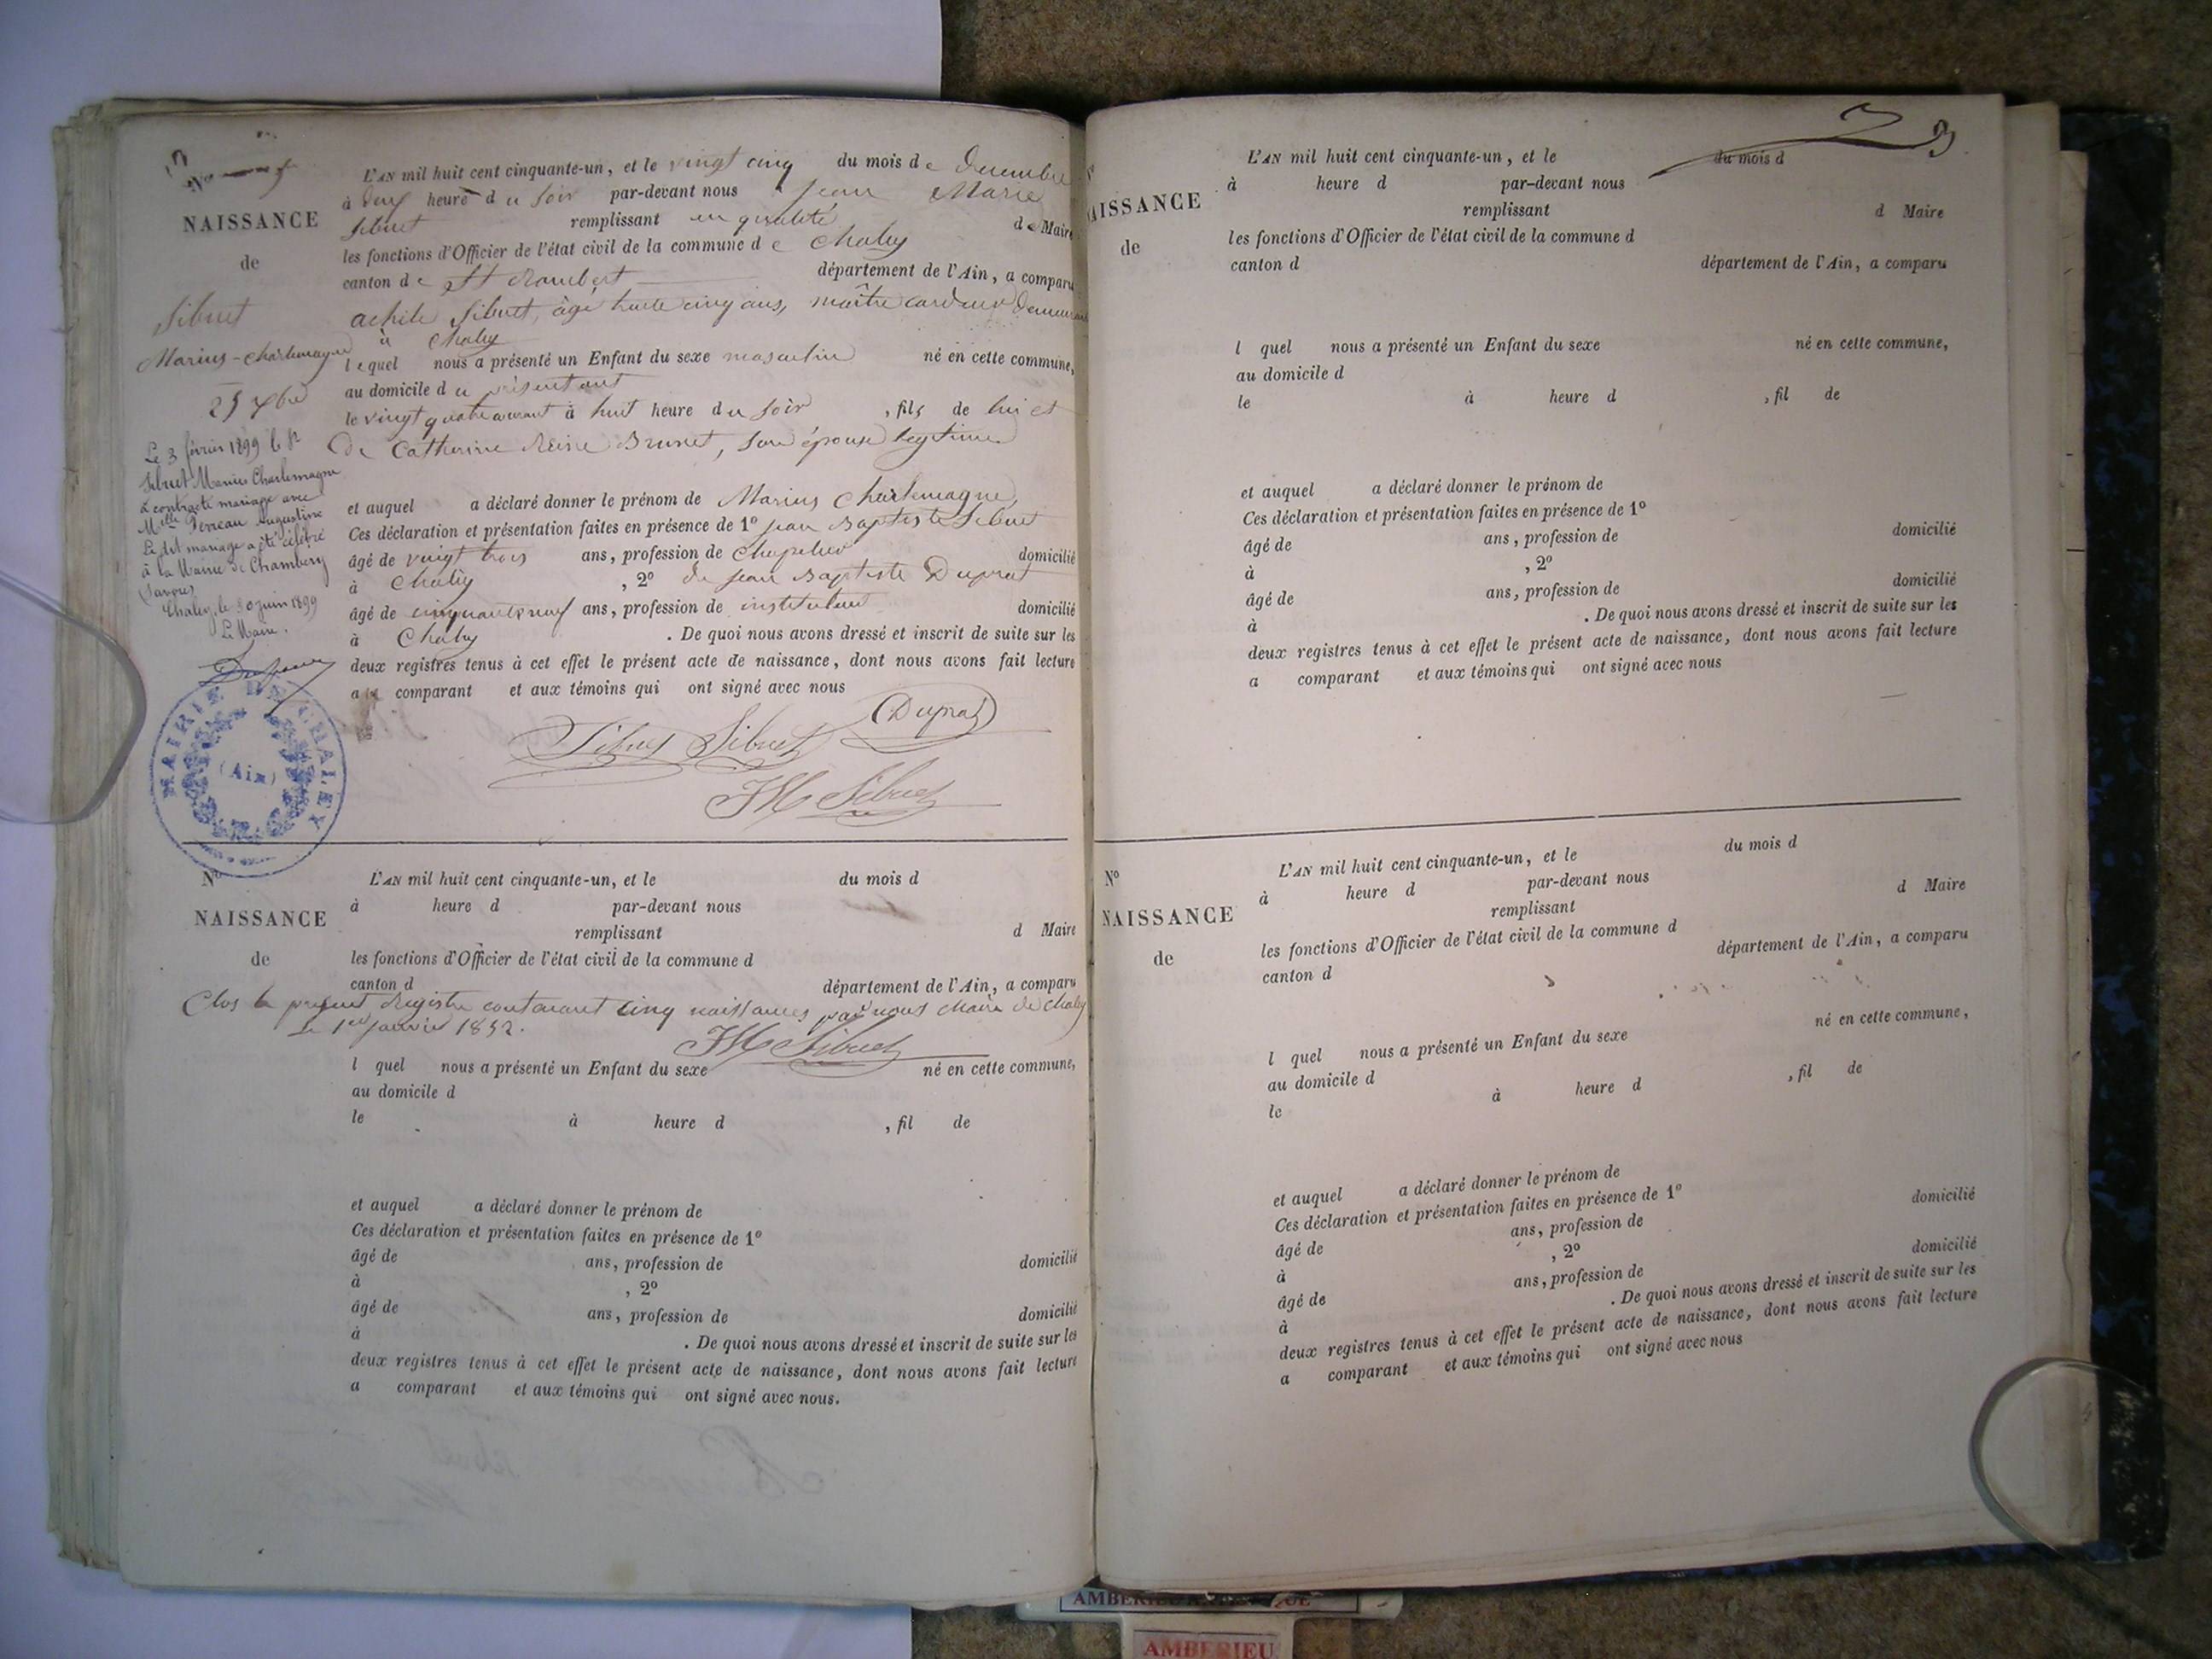 Nº 5
NAISSANCE
de
Sibuet
Marius-Charlemagne
25 Xbre
Le 3 février 1899 le Sr
Sibuet Marius Charlemagne
a contracté mariage avec
Melle Perreau Augustine
Le dit mariage a été célébré
à la Mairie de Chambéry
(Savoie)
Chaley, le 30 juin 1899
Le Maire.
MAIRIE DE CHALEY
(Ain)
L'AN mil huit cent cinquante-un, et le vingt cinq du mois de Decembre
à deux heure du soir par-devant nous Jean Marie
Sibuet remplissant en qualité de Maire
les fonctions d'Officier de l'état civil de la commune de Chaley
canton de St Rambert département de l'Ain, a comparu
achile Sibuet, âgé trente cinq ans, maître cardeur demeurant
à Chaley
lequel nous a présenté un Enfant du sexe masculin né en cette commune,
au domicile du présentant
le vingt quatre courant à huit heure du soir, fils de lui et
de Catherine Reine Brunet, son épouse legitime
et auquel a déclaré donner le prénom de Marius Charlemagne
Ces déclaration et présentation faites en présence de 1º jean Baptiste Sibuet
âgé de vingt trois ans, profession de Chapelier domicilié
à Chaley, 2º de Jean Baptiste Duprat
âgé de cinquante neuf ans, profession de instituteur domicilié
à Chaley. De quoi nous avons dressé et inscrit de suite sur les
deux registres tenus à cet effet le présent acte de naissance, dont nous avons fait lecture
au comparant et aux témoins qui ont signé avec nous
Sibuet Sibuet Duprat
JM Sibuet
Nº
NAISSANCE
de
L'AN mil huit cent cinquante-un, et le du mois d
à heure d par-devant nous
remplissant d Maire
les fonctions d'Officier de l'état civil de la commune d
canton d département de l'Ain, a comparu
Clos le présent Registre contenant cinq naissances par nous Maire de Chaley
Le 1er janvier 1852.
JM Sibuet
l quel nous a présenté un Enfant du sexe né en cette commune,
au domicile d
le à heure d , fil de
et auquel a déclaré donner le prénom de
Ces déclaration et présentation faites en présence de 1º
âgé de ans, profession de domicilié
à , 2º
âgé de ans, profession de domicilié
à . De quoi nous avons dressé et inscrit de suite sur les
deux registres tenus à cet effet le présent acte de naissance, dont nous avons fait lecture
a comparant et aux témoins qui ont signé avec nous.
Nº
NAISSANCE
de
L'AN mil huit cent cinquante-un, et le du mois d
à heure d par-devant nous
remplissant d Maire
les fonctions d'Officier de l'état civil de la commune d
canton d département de l'Ain, a comparu
l quel nous a présenté un Enfant du sexe né en cette commune,
au domicile d
le à heure d , fil de
et auquel a déclaré donner le prénom de
Ces déclaration et présentation faites en présence de 1º
âgé de ans, profession de domicilié
à , 2º
âgé de ans, profession de domicilié
à . De quoi nous avons dressé et inscrit de suite sur les
deux registres tenus à cet effet le présent acte de naissance, dont nous avons fait lecture
a comparant et aux témoins qui ont signé avec nous
Nº
NAISSANCE
de
L'AN mil huit cent cinquante-un, et le du mois d
à heure d par-devant nous
remplissant d Maire
les fonctions d'Officier de l'état civil de la commune d
canton d département de l'Ain, a comparu
l quel nous a présenté un Enfant du sexe né en cette commune,
au domicile d
le à heure d , fil de
et auquel a déclaré donner le prénom de
Ces déclaration et présentation faites en présence de 1º
âgé de ans, profession de domicilié
à , 2º
âgé de ans, profession de domicilié
à . De quoi nous avons dressé et inscrit de suite sur les
deux registres tenus à cet effet le présent acte de naissance, dont nous avons fait lecture
a comparant et aux témoins qui ont signé avec nous
AMBERIEU